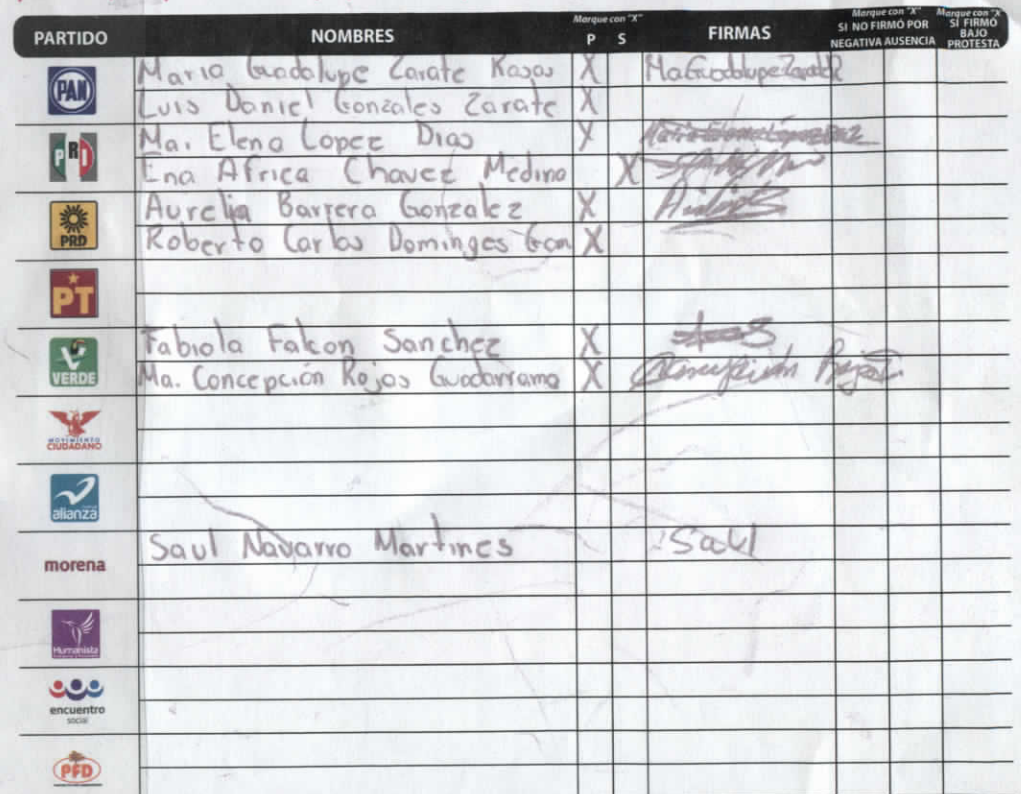 PARTIDO NOMBRES Marque con "X" P S FIRMAS Marque con "X" SI NO FIRMÓ POR NEGATIVA AUSENCIA Marque con "X" SI FIRMÓ BAJO PROTESTA
PAN Maria Guadalupe Zarate Rosas X Ma Guadalupe Zarate R
Luis Daniel Gonzales Zarate X
PRI Ma. Elena Lopez Dias X Maria Elena López Diaz
Ena Africa Chavez Medina X
PRD Aurelia Barrera Gonzalez X
Roberto Carlos Dominges Gon X
PT
VERDE Fabiola Falcon Sanchez X
Ma. Concepción Rojas Guadarrama X Concepción Rojas
MOVIMIENTO CIUDADANO
alianza
morena Saul Navarro Martines Saul
Humanista
encuentro social
PFD